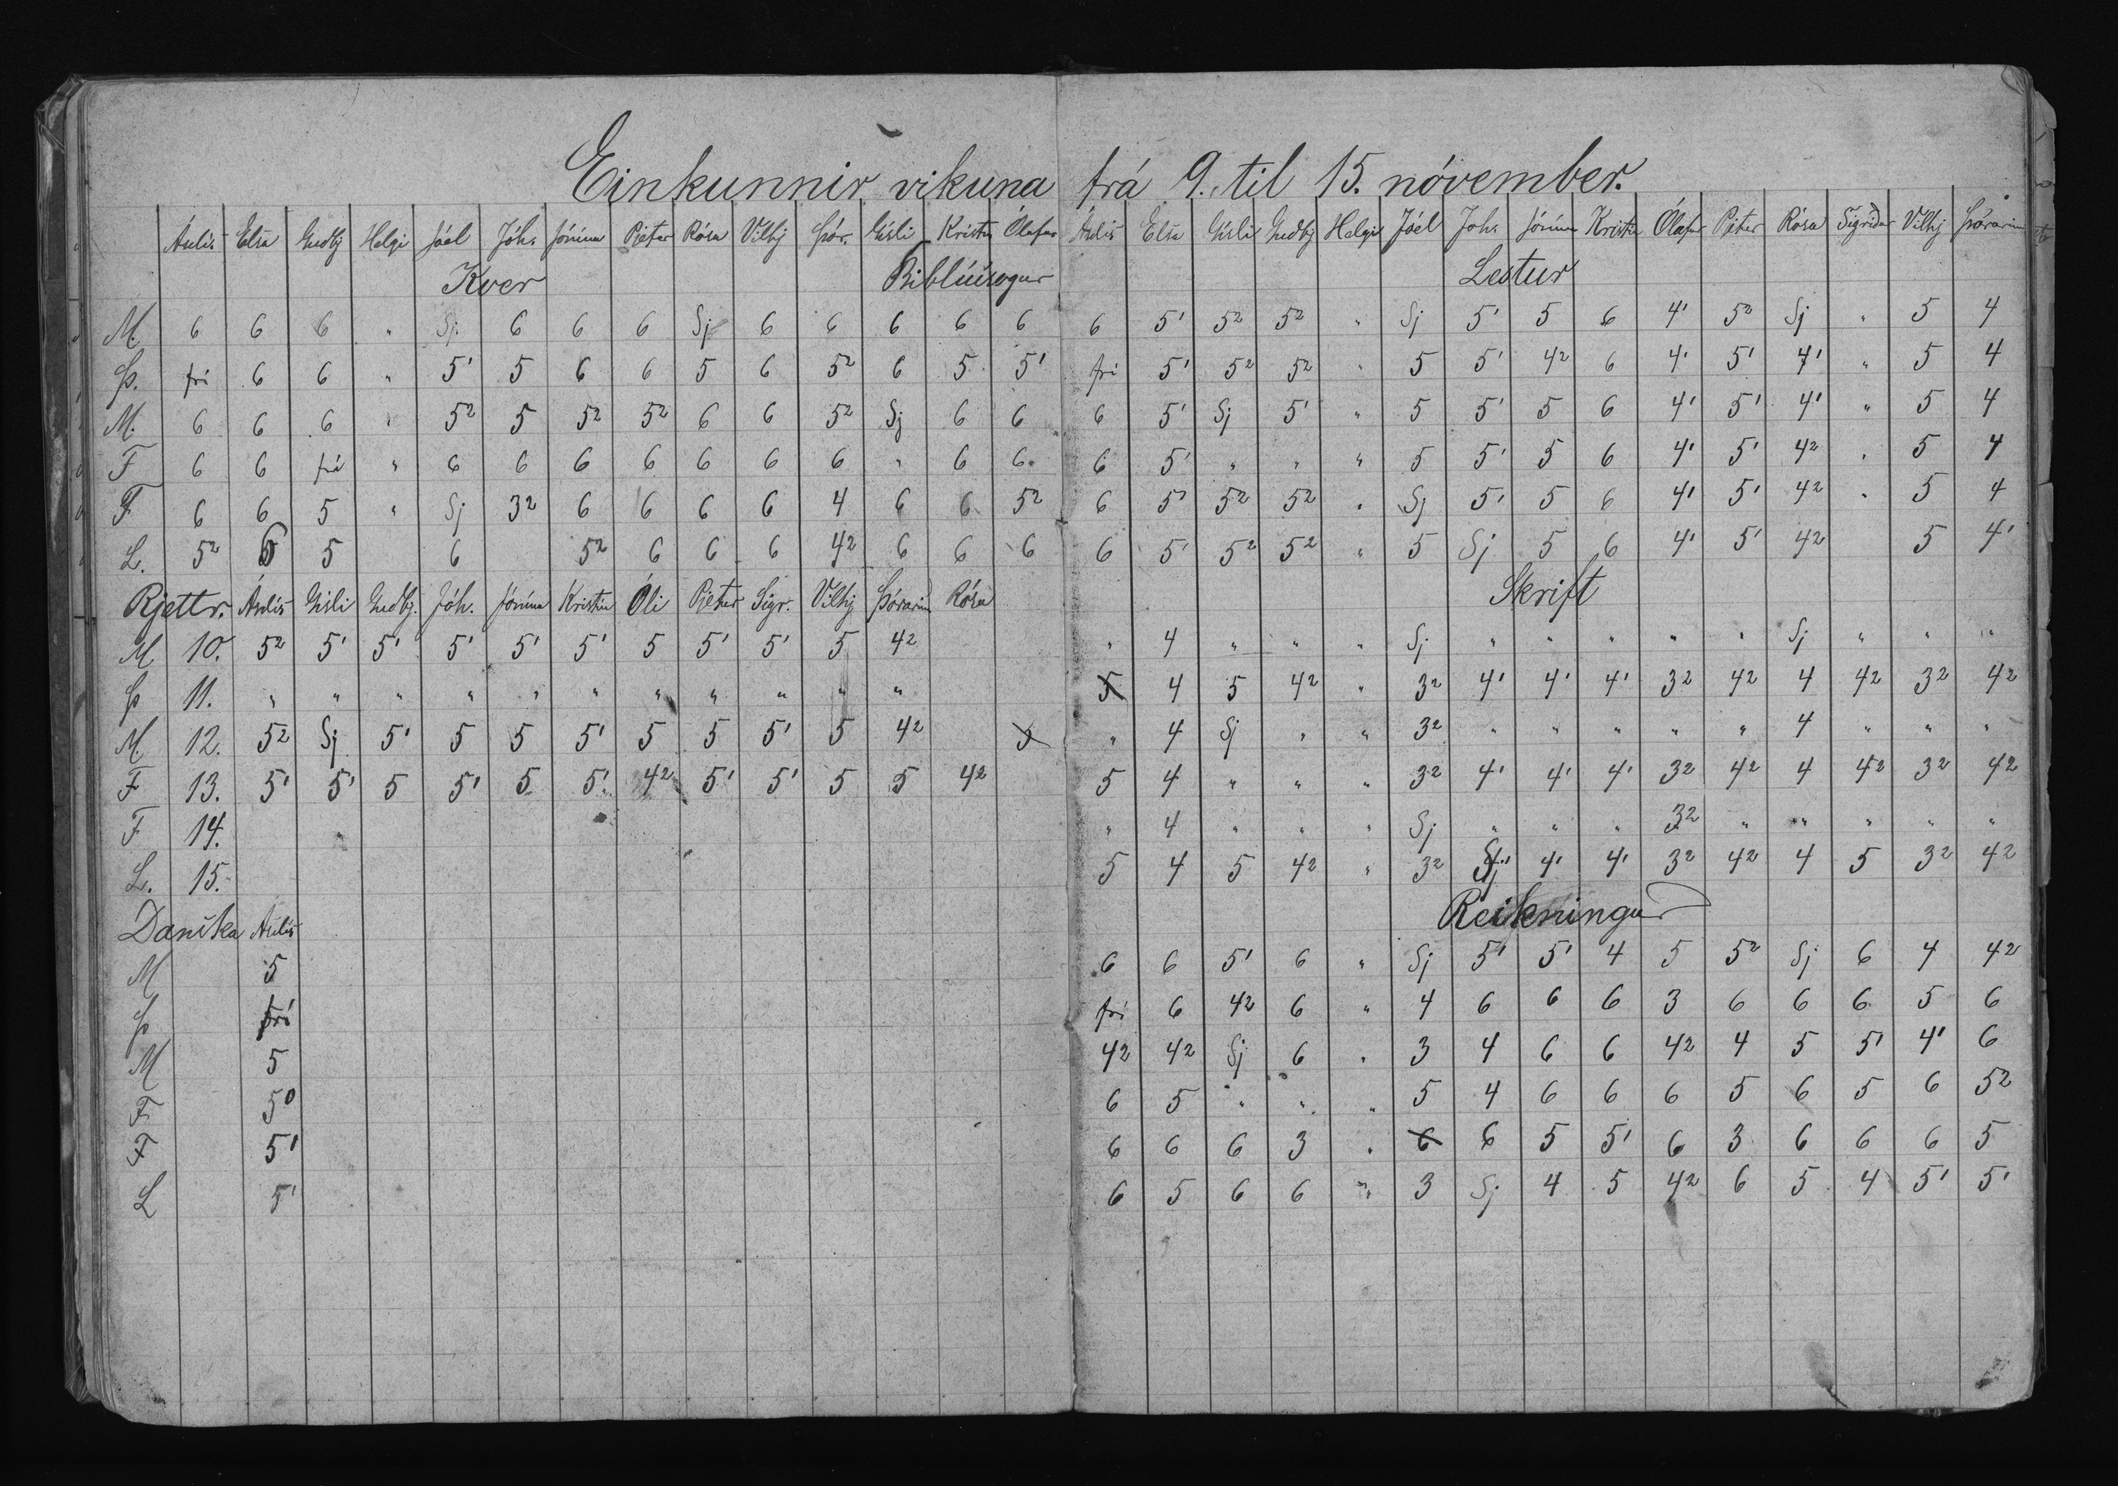 Einkunnir vikuna frá 9. til 15. nóvember.
Ásdís Elsa Guðbj Helgi Jóel Jóh. Jónína Pjetur Rósa Vilhj Þór. Gísli Kristín Ólafur
Kver Biblíusogur
M. 6 6 6 " Sj. 6 6 6 Sj 6 6 6 6 6
Þ. frí 6 6 " 5¹ 5 6 6 5 6 5² 6 5 5¹
M. 6 6 6 " 5² 5 5² 5² 6 6 5² Sj 6 6
F 6 6 frí " 6 6 6 6 6 6 6 " 6 6
F 6 6 5 " Sj 3² 6 6 6 6 4 6 6 5²
L. 5² 6 5 6 5² 6 6 6 4² 6 6 6
Rjettr. Ásdís Gísli Guðbj. Jóh. Jónína Kristín Óli Pjetur Sigr. Vilhj Þórarin Rósa
M 10. 5² 5¹ 5¹ 5¹ 5¹ 5¹ 5 5¹ 5¹ 5 4²
Þ 11. " " " " " " " " " " "
M. 12. 5² Sj 5¹ 5 5 5¹ 5 5 5¹ 5 4² 5
F 13. 5¹ 5¹ 5 5¹ 5 5¹ 4² 5¹ 5¹ 5 5 4²
F 14.
L. 15.
Danska Ásdís
M 5
Þ frí
M 5
F 5⁰
F 5¹
L 5¹
Ásdís Elsa Gísli Guðbj Helgi Jóel Joh. Jónína Kristín Ólafur Pjetur Rósa Sigríður Vilhj Þórarin
Lestur
6 5¹ 5² 5² " Sj 5¹ 5 6 4¹ 5² Sj " 5 4
frí 5¹ 5² 5² " 5 5¹ 4² 6 4¹ 5¹ 4¹ " 5 4
6 5¹ Sj 5¹ " 5 5¹ 5 6 4¹ 5¹ 4¹ " 5 4
6 5¹ " " " 5 5¹ 5 6 4¹ 5¹ 4² " 5 4
6 5¹ 5² 5² " Sj 5¹ 5 6 4¹ 5¹ 4² " 5 4
6 5¹ 5² 5² " 5 Sj 5 6 4¹ 5¹ 4² 5 4¹
Skrift
" 4 " " " Sj " " " " " Sj " " "
5 4 5 4² " 3² 4¹ 4¹ 4¹ 3² 4² 4 4² 3² 4²
" 4 Sj " " 3² " " " " " 4 " " "
5 4 " " " 3² 4¹ 4¹ 4¹ 3² 4² 4 4² 3² 4²
" 4 " " " Sj " " " 3² " " " " "
5 4 5 4² " 3² Sj 4¹ 4¹ 3² 4² 4 5 3² 4²
Reikningur
6 6 5¹ 6 " Sj 5¹ 5¹ 4 5 5² Sj 6 4 4²
frí 6 4² 6 " 4 6 6 6 3 6 6 6 5 6
4² 4² Sj 6 " 3 4 6 6 4² 4 5 5¹ 4¹ 6
6 5 " " " 5 4 6 6 6 5 6 5 6 5²
6 6 6 3 " 6 6 5 5¹ 6 3 6 6 6 5
6 5 6 6 " 3 Sj 4 5 4² 6 5 4 5¹ 5¹